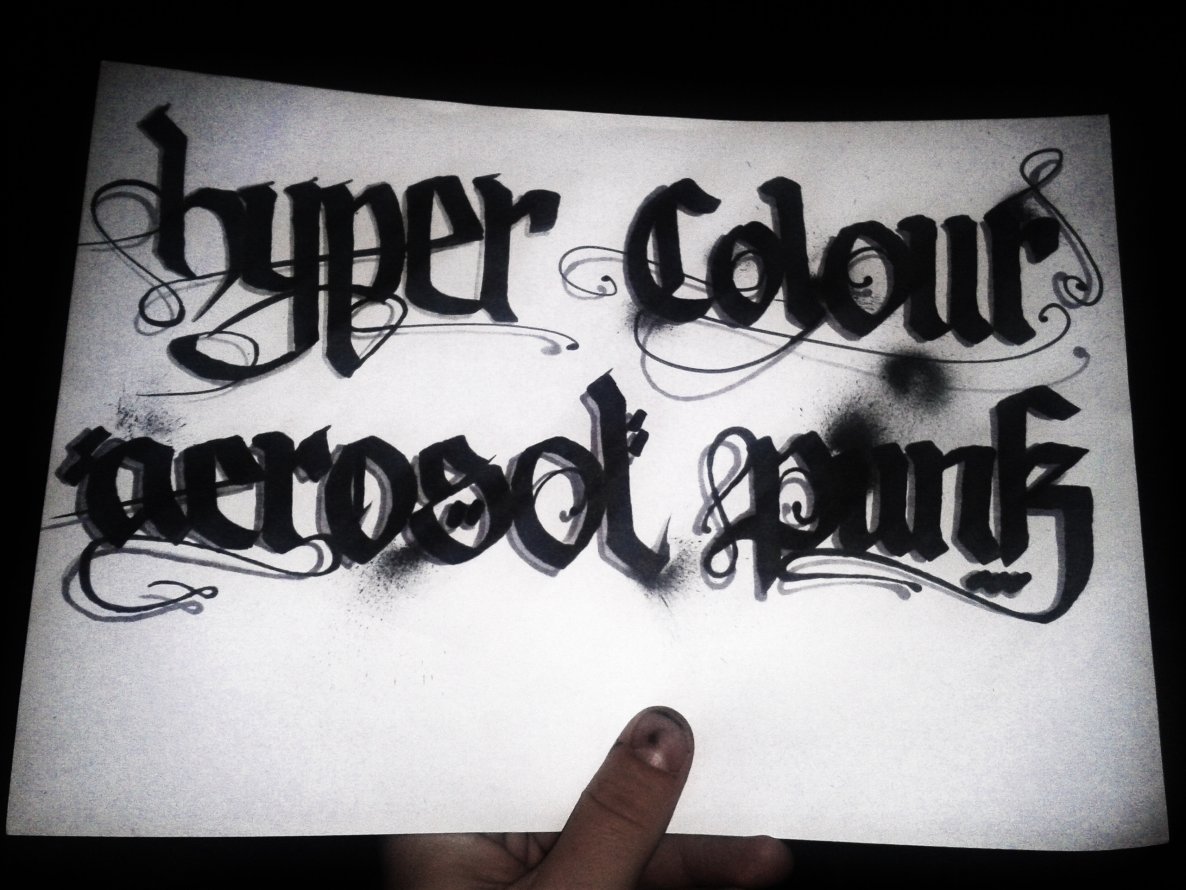 hyper Colour
aerosol punk